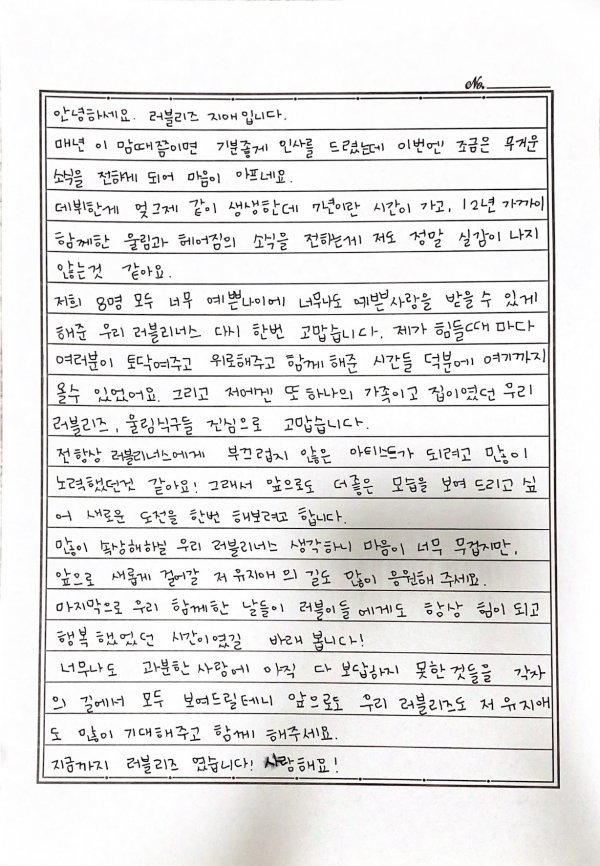 No.
안녕하세요. 러블리즈 지애입니다.
매년 이 맘때쯤이면 기분좋게 인사를 드렸는데 이번엔 조금은 무거운
소식을 전하게 되어 마음이 아프네요.
데뷔한게 엊그제 같이 생생한데 7년이란 시간이 가고, 12년 가까이
함께한 울림과 헤어짐의 소식을 전하는게 저도 정말 실감이 나지
않는것 같아요.
저희 8명 모두 너무 예쁜나이에 너무나도 예쁜사랑을 받을 수 있게
해준 우리 러블리너스 다시 한번 고맙습니다. 제가 힘들때 마다
여러분이 토닥여주고 위로해주고 함께 해준 시간들 덕분에 여기까지
올수 있었어요. 그리고 저에겐 또 하나의 가족이고 집이였던 우리
러블리즈, 울림식구들 진심으로 고맙습니다.
전항상 러블리너스에게 부끄럽지 않은 아티스트가 되려고 많이
노력했던것 같아요! 그래서 앞으로도 더좋은 모습을 보여 드리고 싶
어 새로운 도전을 한번 해보려고 합니다.
많이 속상해하실 우리 러블리너스 생각하니 마음이 너무 무겁지만,
앞으로 새롭게 걸어갈 저 유지애 의 길도 많이 응원해 주세요.
마지막으로 우리 함께한 날들이 러블이들 에게도 항상 힘이 되고
행복 했었던 시간이였길 바래 봅니다!
너무나도 과분한 사랑에 아직 다 보답하지 못한것들을 각자
의 길에서 모두 보여드릴테니 앞으로도 우리 러블리즈도 저 유지애
도 많이 기대해주고 함께 해주세요.
지금까지 러블리즈 였습니다! 사랑해요!